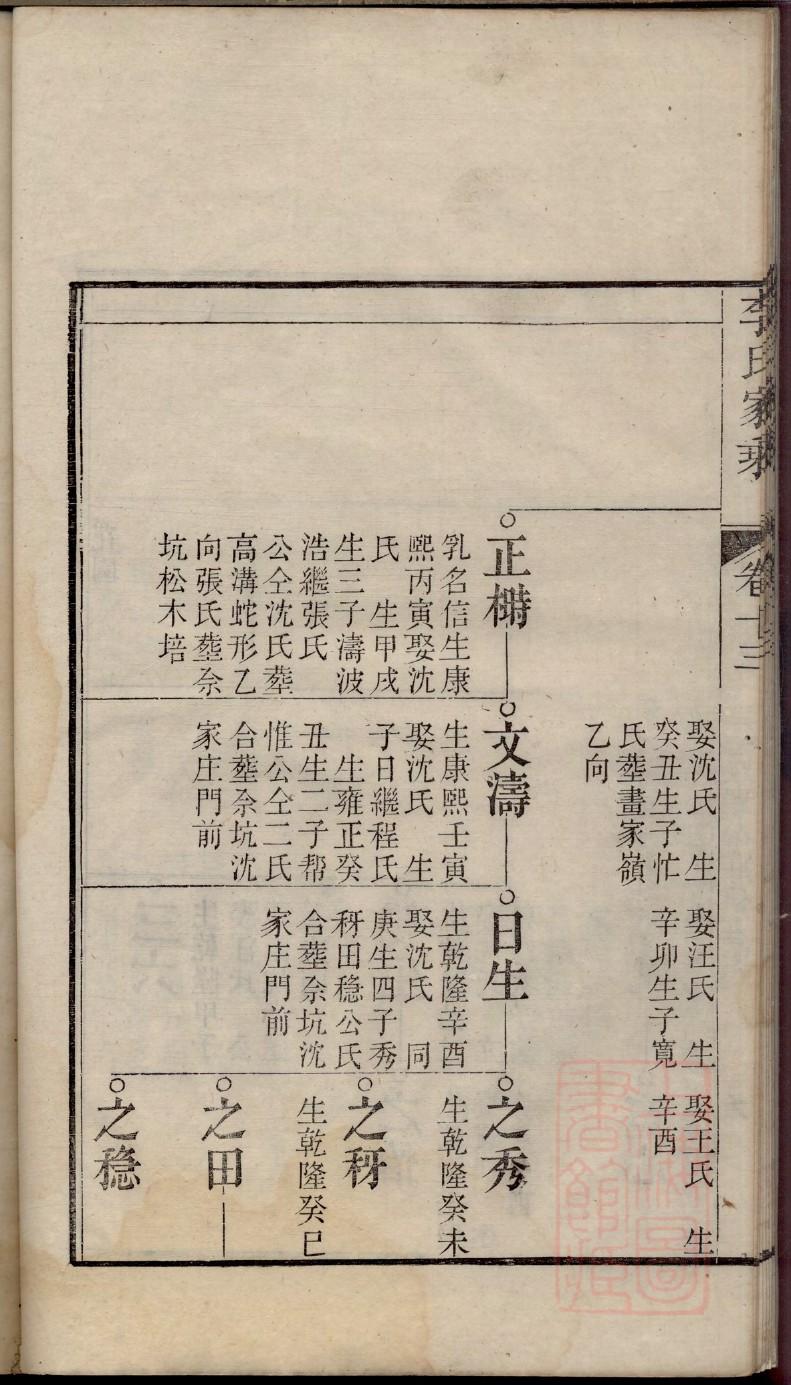 李氏家乘
卷十三
娶沈氏　生
癸丑生子忙
氏塟畫家嶺
乙向
娶汪氏　生
辛卯生子寬
娶王氏　生
辛酉
正榯
乳名信生康
熙丙寅娶沈
氏　生甲戌
生三子濤波
浩繼張氏
公仝沈氏塟
高溝蛇形乙
向張氏塟佘
坑松木培
文濤
生康熙壬寅
娶沈氏　生
子日繼程氏
　生雍正癸
丑生二子帮
惟公仝二氏
合塟佘坑沈
家庄門前
日生
生乾隆辛酉
娶沈氏　同
庚生四子秀
秤田穏公氏
合塟佘坑沈
家庄門前
之秀
生乾隆癸未
之秤
生乾隆癸巳
之田
之穏